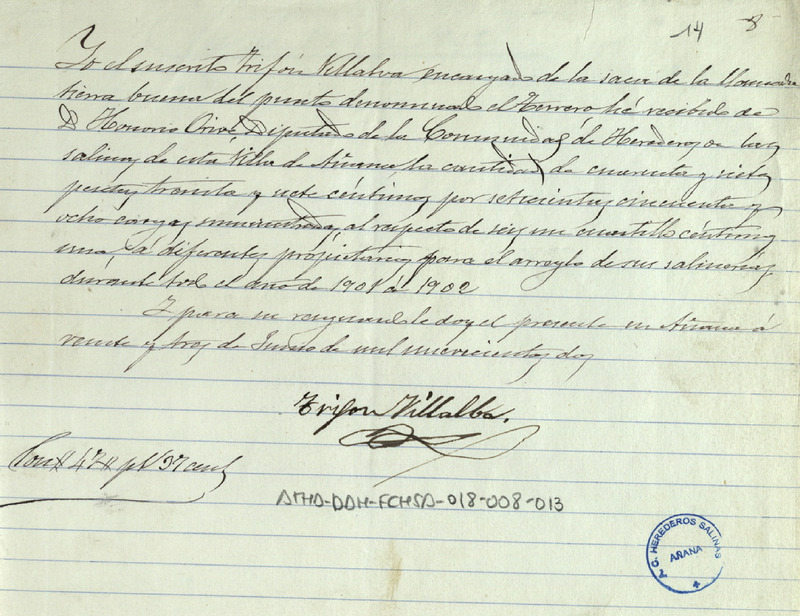 14 8
Yo el suscrito Trifón Villalva encargado de la saca de la llamada
tierra buena del punto denominado el Herrero hé recibido de
D Honorio Orive Diputado de la Comunidad de Herederos de las
salinas de esta Villa de Añana, la cantidad de cuarenta y siete
pesetas treinta y siete céntimos por setecientas cincuenta y
ocho cargas suministradas, al respecto de seis un cuartillo céntimos
una, á diferentes propietarios para el arreglo de sus salinerias,
durante todo el año de 1901 á 1902
I para su resguardo le doy el presente en Añana á
veinte y tres de Junio de mil novecientos dos
Trifon Villalba.
Son # 47 # pts 37 cents
ATHA-DAH-FCHSA-018-008-013
A. C. HEREDEROS SALINAS
AÑANA